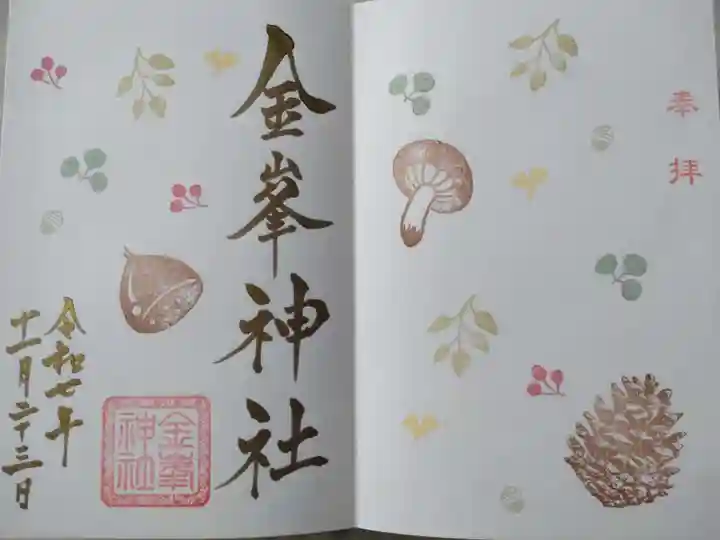 奉拝
金峯神社
令和七年
十一月二十三日
金峯
神社